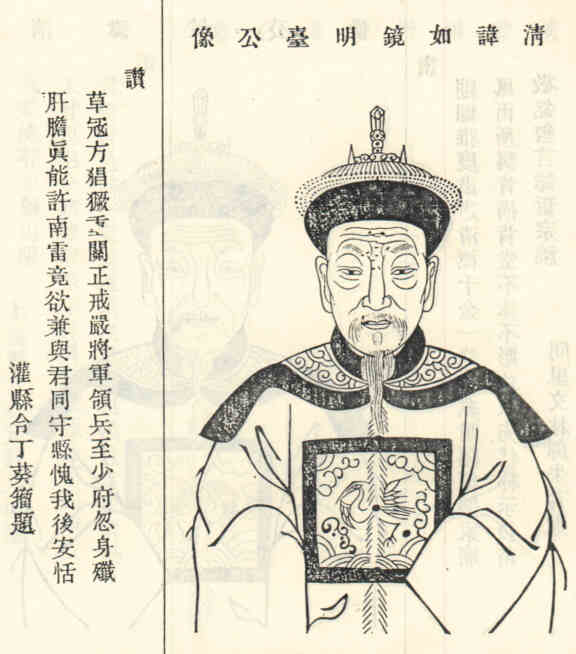 清諱如鏡明臺公像
讚
草冦方猖獗重關正戒嚴將軍領兵至少府忽身殲
肝膽眞能許南雷竟欲兼與君同守縣愧我後安恬
灌縣令丁葵籀題